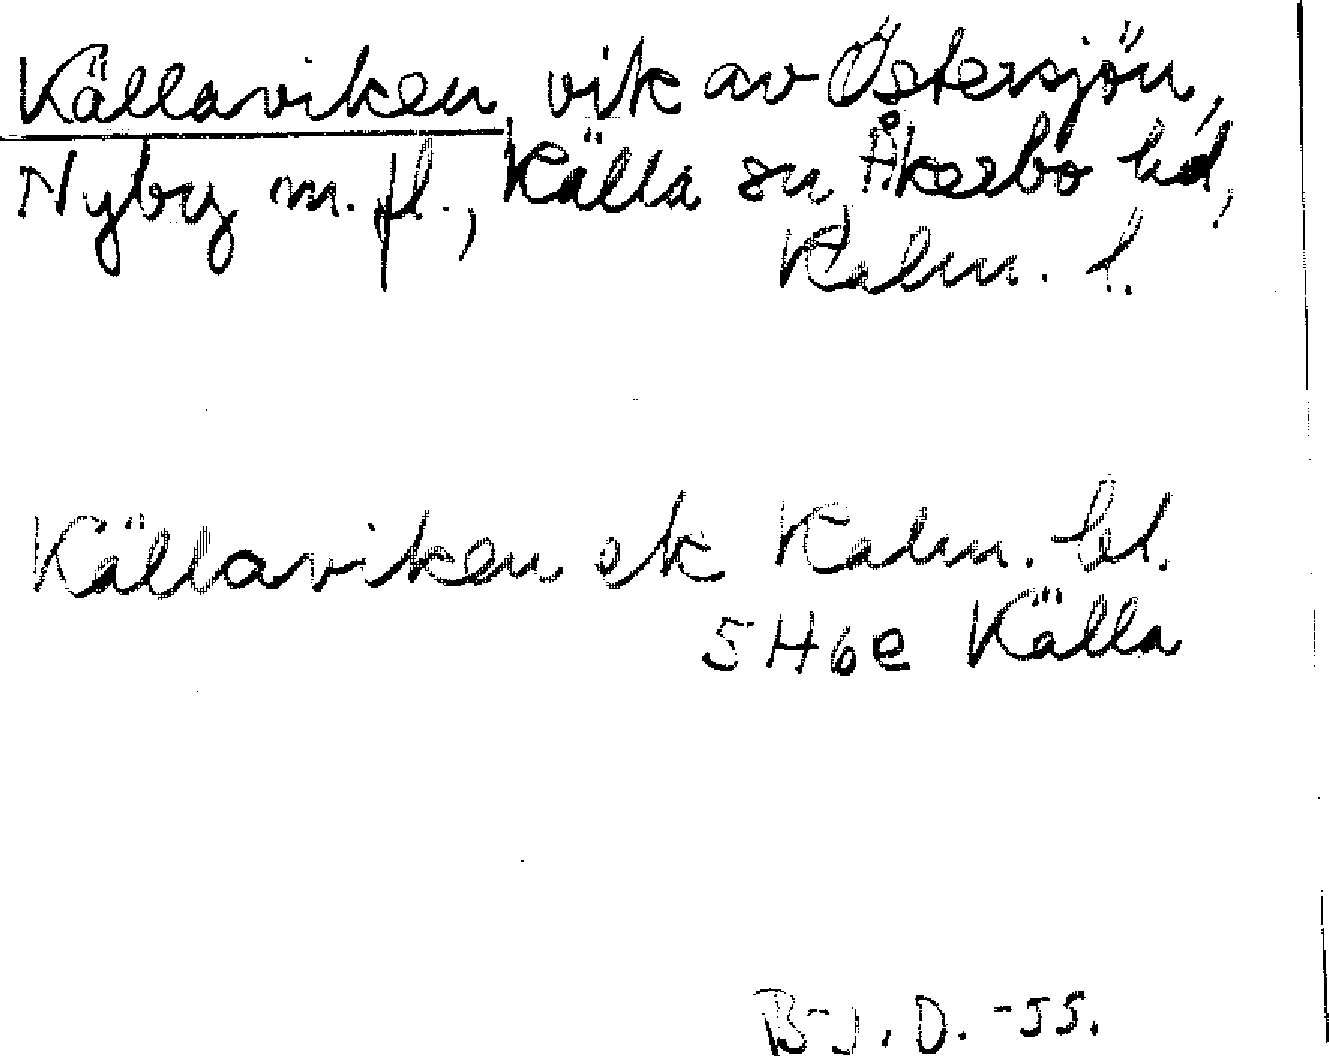 Källaviken, vik av Östersjön,
Nyby m. fl., Källa sn Åkerbo hd,
Kalm. l.
Källaviken ek Kalm. bl.
5H6e Källa
B-J. D. -55.